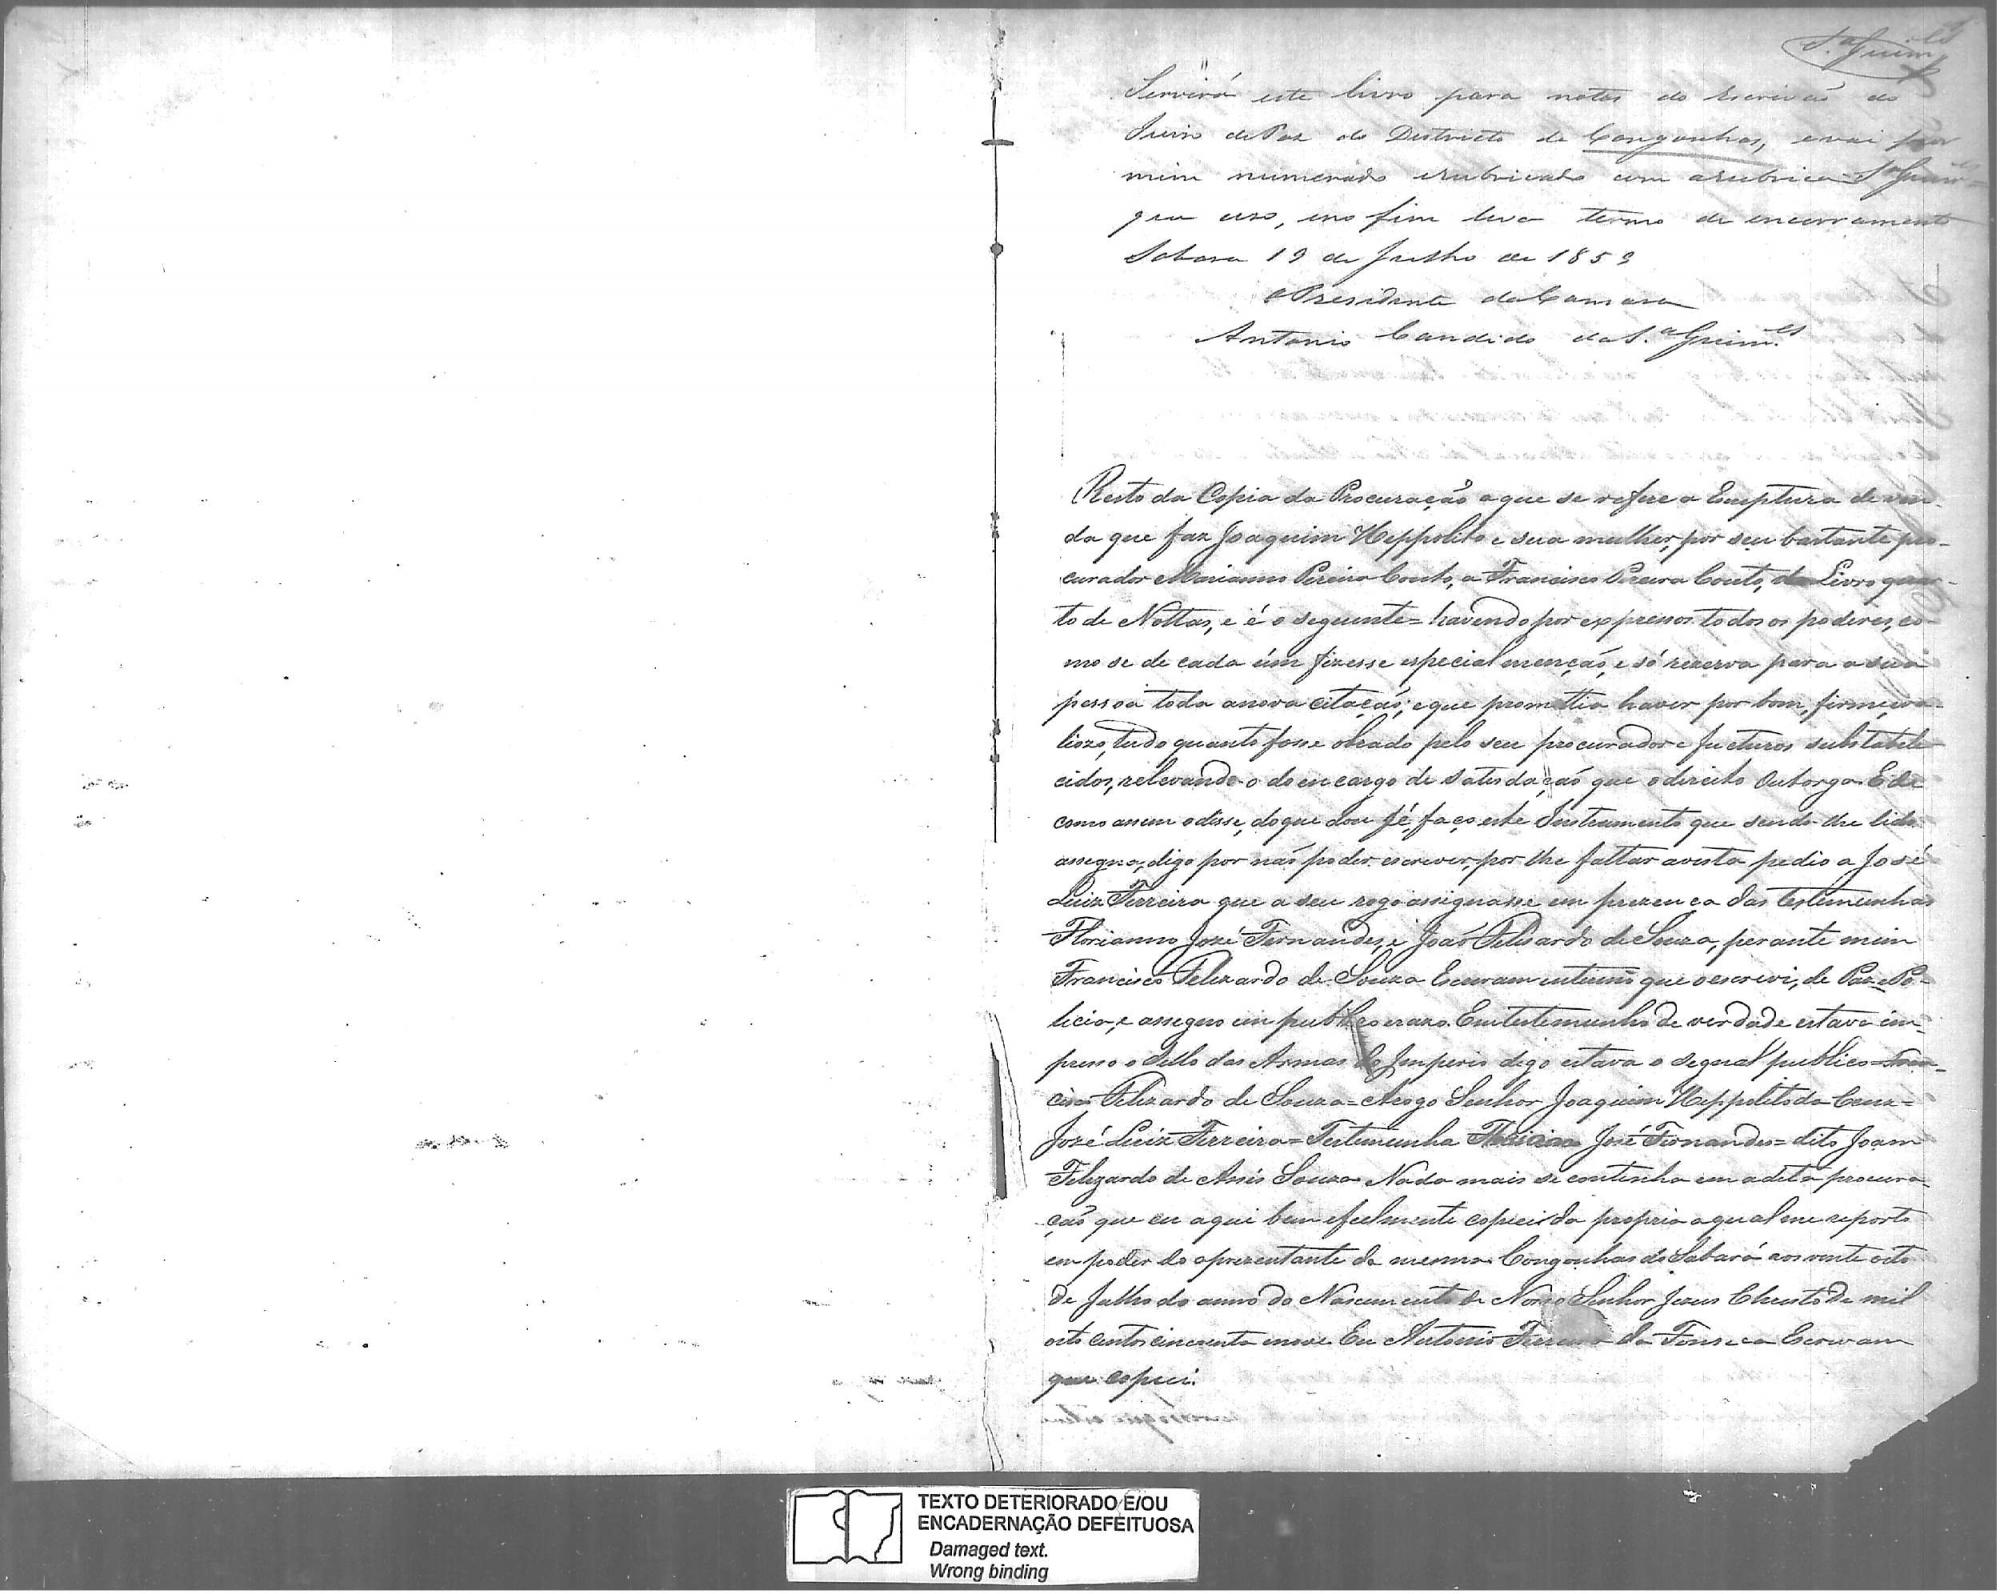 S.ª Guim.es
Servirá este livro para notas do Escrivaõ do
Juizo de Paz do Districto de Congonhas, e vai por
mim numerado erubricado com arubrica = S.ª Guim.es =
que uso, eno fim leva termo de encerramento
Sabara 19 de Julho de 1859
O Presidente da Camara
Antonio Candido da S.ª Guim.es
Resto da Copia da Procuraçaõ a que se refere a Escriptura de ven-
da que faz Joaquim Heppolito e sua mulher, por seu bastante pro-
curador Marianno Pereira Couto, a Francisco Pereira Couto, do Livro quar-
to de Nottas, e é o seguinte = havendo por expressos todos os poderes, co-
mo se de cada úm fizesse especial mençaõ, e só rezerva para a sua
pessoa toda anova citaçaõ; eque promettia haver por bom, firme, eva-
liozo, tudo quanto fosse obrado pelo seu procurador e fucturos substabele-
cidos, relevando-o do encargo de satisdaçaõ que odireito outorga. E de
como assim odisse, doque dou fé, faço este Instrumento que sendo-lhe lido
assegna, digo por naõ poder escrever, por lhe faltar avista pedio a José
Luiz Ferreira que a seu rogo assignasse em prezença das testemunhas
Florianno José Fernandes, e Joaõ Felisardo de Souza, perante mim
Francisco Felizardo de Souza Escrivam interino que oescrevi, de Paz e Po-
licia, e assegno em publico erazo. Emtestemunho de verdade estava im-
presso o Sello das Armas do Imperio digo estava o segnal publico = Fran-
cisco Felizardo de Souza = Arogo Senhor Joaquim Heppolito da Cruz =
José Luiz Ferreira = Testemunha José Fernandes = dito Joam
Felizardo de Assis Souza. Nada mais se continha em adita procura-
çaõ que eu aqui bem efielmente copiei da propria aqual me reporto
em poder do aprezentante da mesma. Congonhas do Sabará aos vinte oito
de Julho do anno do Nascimento de Nosso Senhor Jezus Christo de mil
oito centos cincoenta enove. Eu Antonio Ferreira da Fonseca Escrivam
que copiei.
TEXTO DETERIORADO E/OU
ENCADERNAÇÃO DEFEITUOSA
Damaged text.
Wrong binding